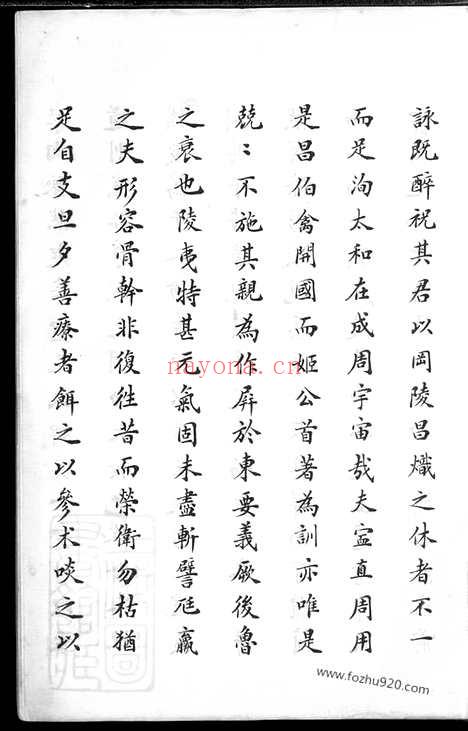 詠既醉祝其君以岡陵昌熾之休者不一
而足洵太和在成周宇宙哉夫寍直周用
是昌伯禽開國而姬公首著為訓亦唯是
兢〻不施其親為作屏於東要義厥後魯
之衰也陵夷特甚元氣固未盡斬譬尫羸
之夫形容骨幹非復徃昔而榮衛勿枯猶
足自支旦夕善療者餌之以參术啖之以
nayona.cn
www.fozhu920.com